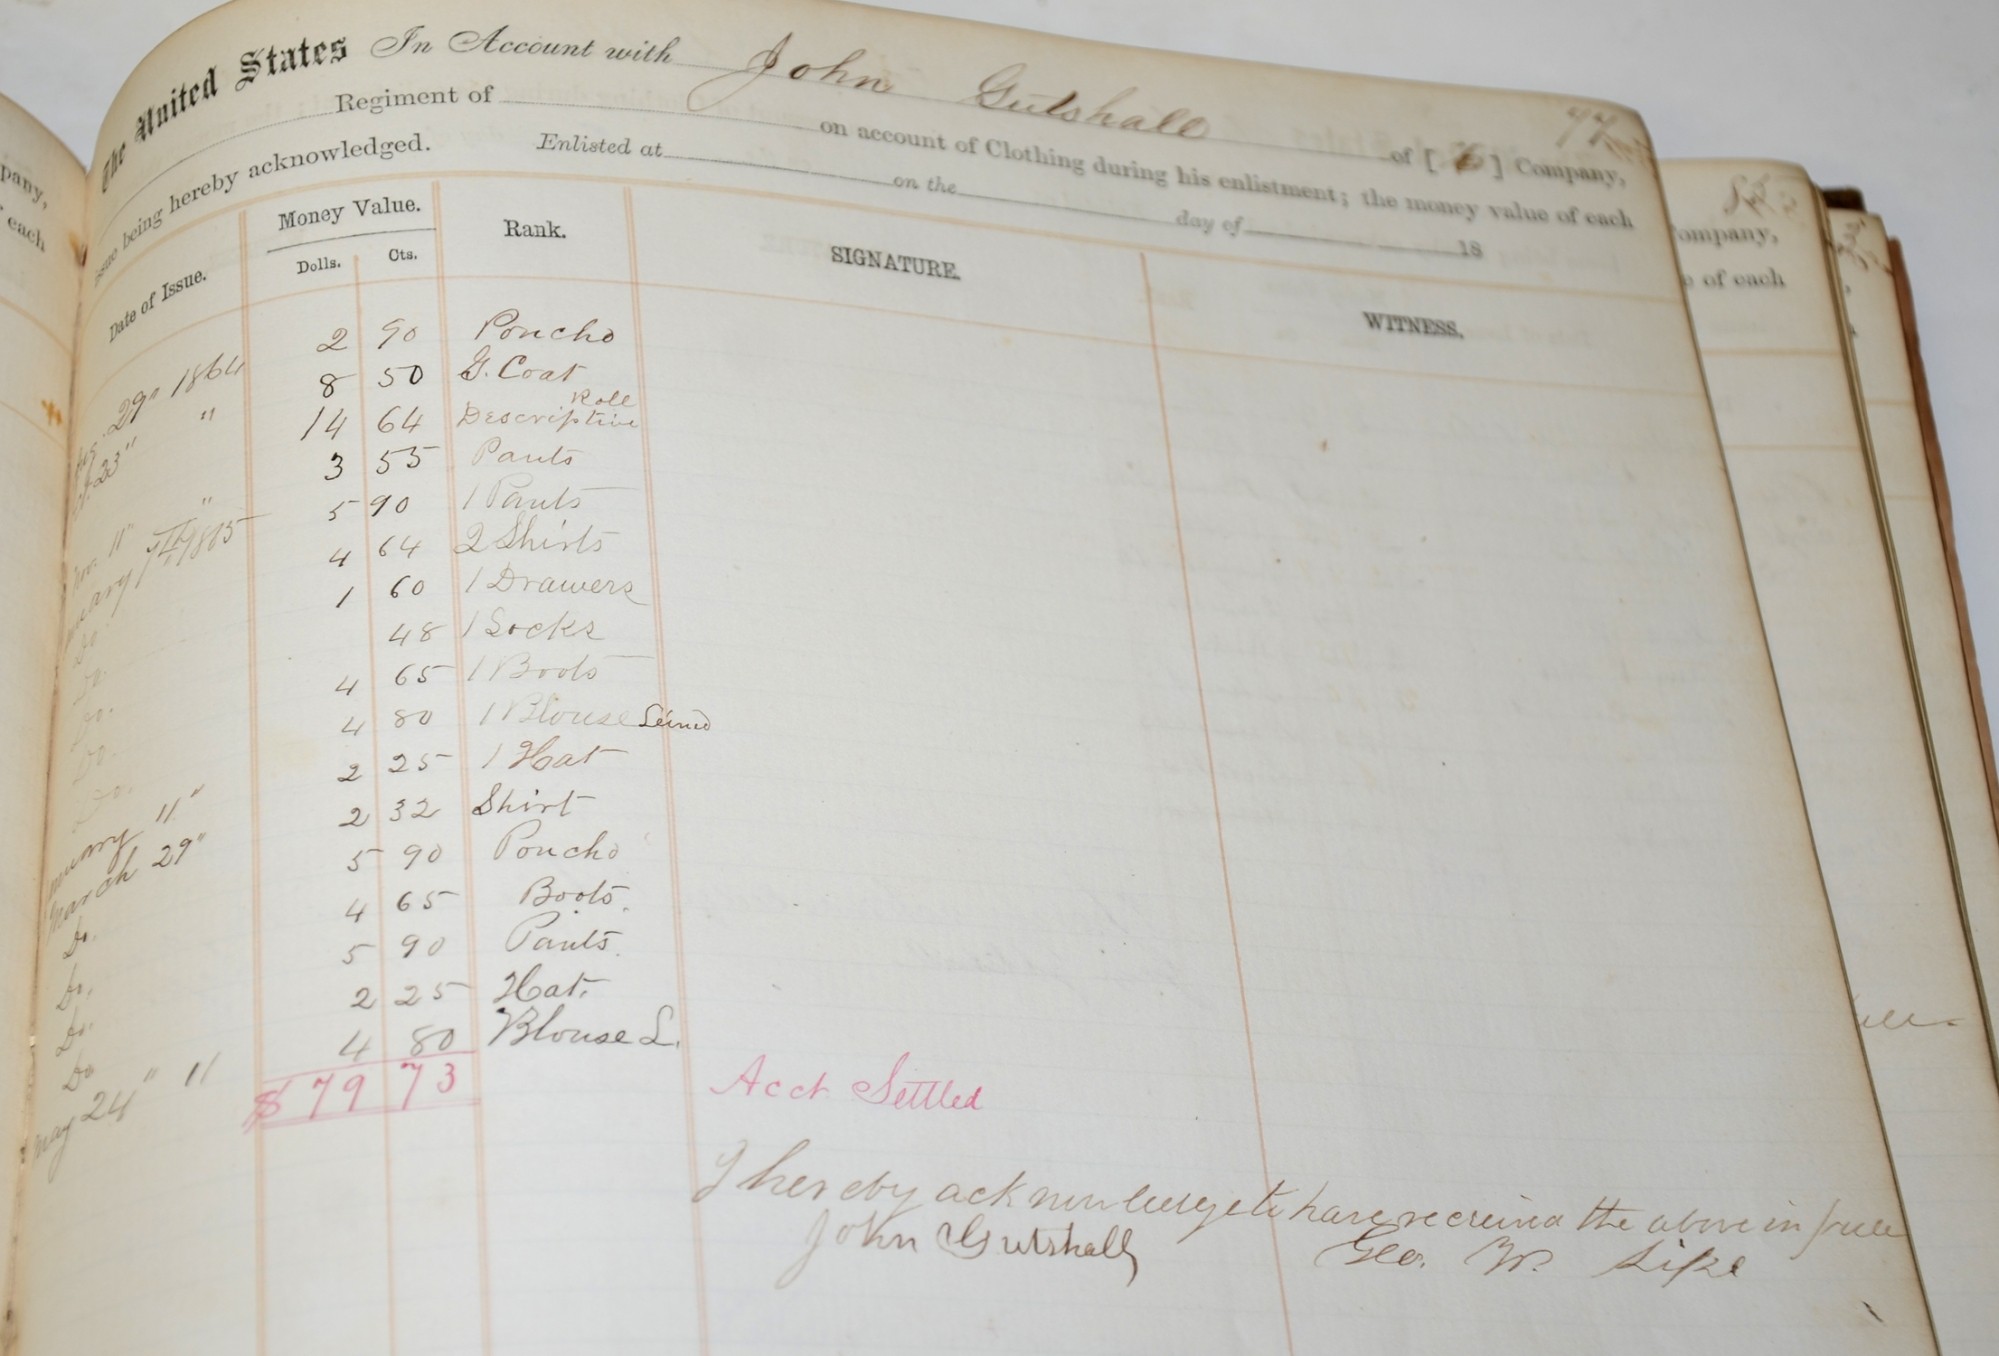 The United States In Account with John Gutshall of [ ] Company,
Regiment of on account of Clothing during his enlistment; the money value of each
issue being hereby acknowledged. Enlisted at on the day of 18
Date of Issue. Money Value. Dolls. Cts. Rank. SIGNATURE. WITNESS.
29" 1864 2 90 Poncho
" 8 50 G. Coat
23" 14 64 Descriptive Roll
3 55 Pants
11" " 5 90 1 Pants
1865 4 64 2 Shirts
Do 1 60 1 Drawers
Do. 48 1 Socks
Do. 4 65 1 Boots
Do. 4 80 1 Blouse Lined
Do. 2 25 1 Hat
11" 2 32 Shirt
March 29" 5 90 Poncho
Do. 4 65 Boots.
Do. 5 90 Pants.
Do. 2 25 Hat.
Do 4 80 Blouse L.
May 24" " $ 79 73 Acct Settled
I hereby acknowledge to have received the above in full
John Gutshall Geo. W. Sipe
pany,
each
Company,
of each